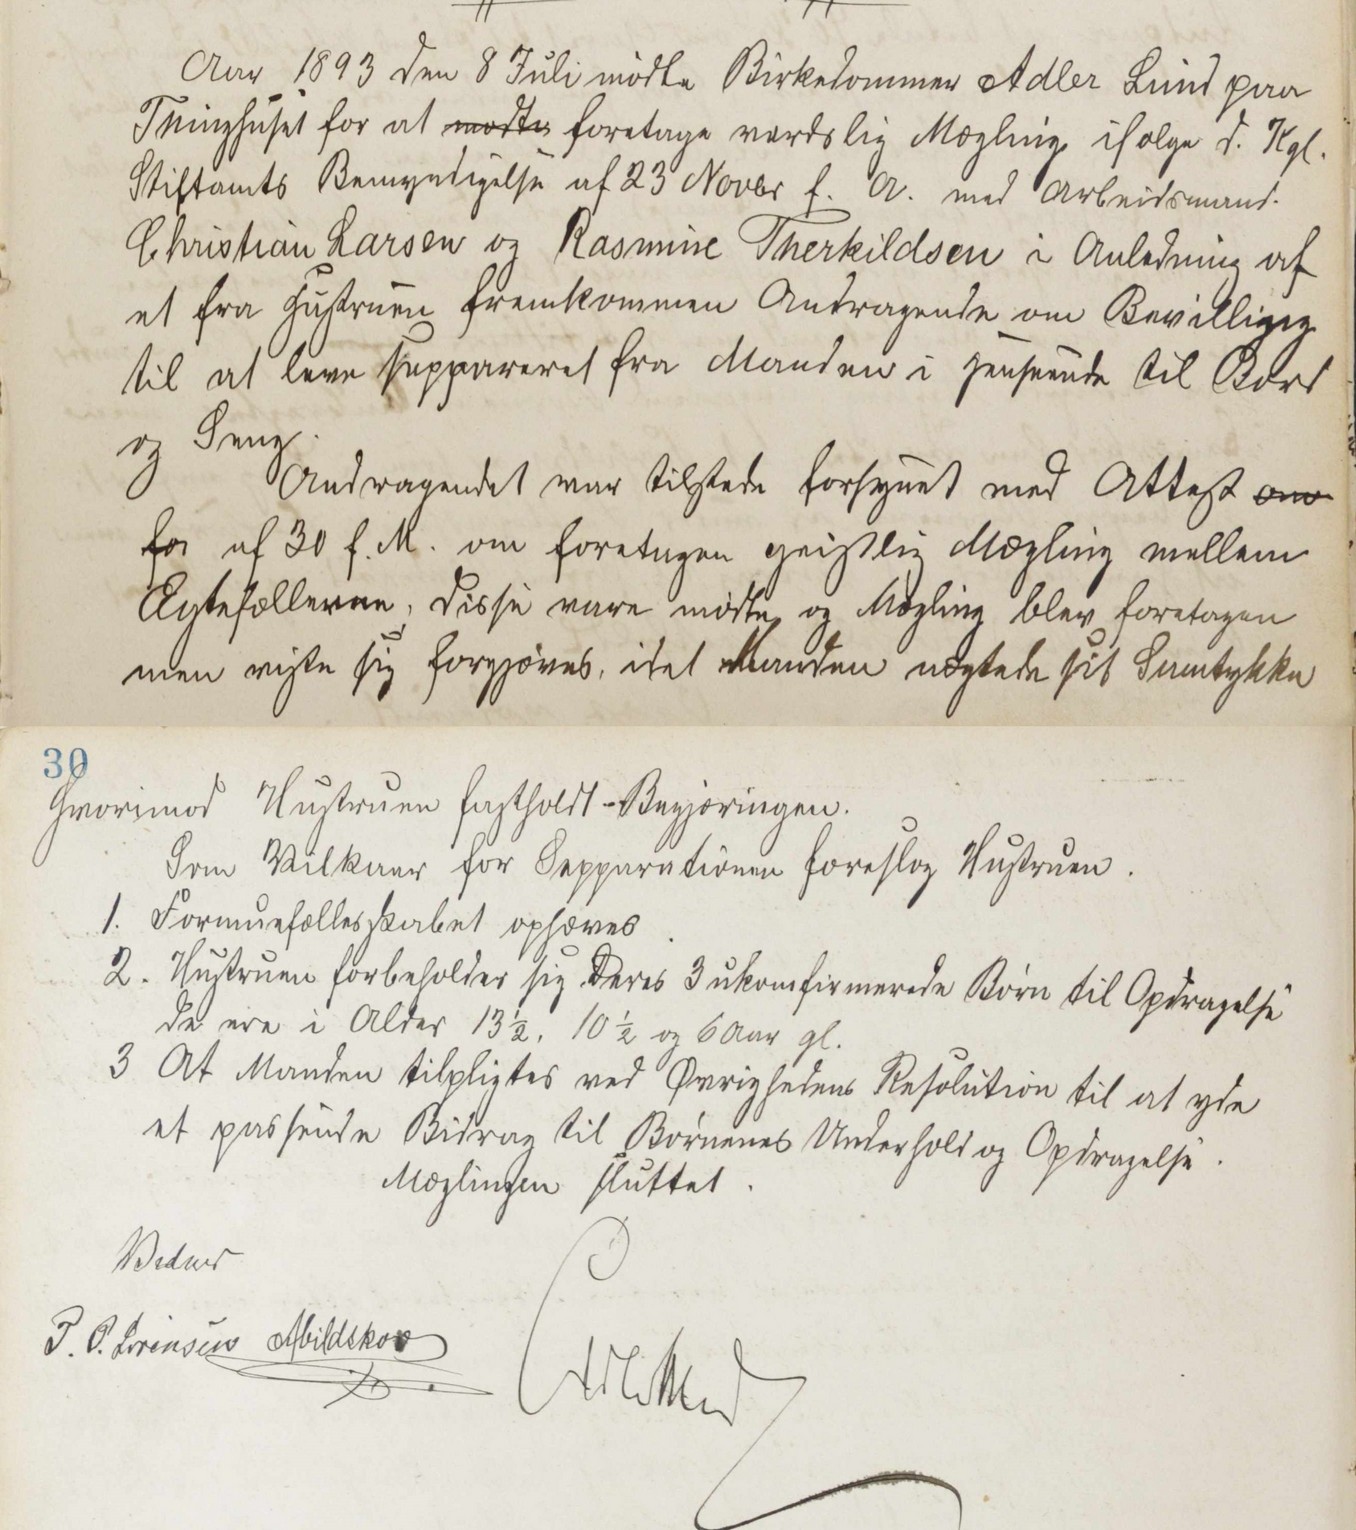 Aar 1893 den 8 Juli mödte Birkedommer Adler Lund paa
Thinghuset for at mødte foretage verdslig Mægling ifølge d. Kgl.
Stiftamts Bemyndigelse af 23 Novbr f. A. med Arbeidsmand.
Christian Larsen og Rasmine Therkildsen i Anledning af
et fra Hustruen fremkommen Andragende om Bevilligng
til at leve seppareret fra Manden i Henseende til Bord
og Seng.
Andragendet var tilstede forsynet med Attest om
for af 30 f. M. om foretagen geistlig Mægling mellem
Ægtefællerne, disse vare mødte og Mægling blev foretagen
men viste sig forgjæves, idet Manden nægtede sit Samtykke
30
Hvorimod Hustruen fastholdt Begjæringen.
Som Vilkaar for Sepparationen foreslog Hustruen.
1. Formuefællesskabet ophæves
2. Hustruen forbeholder sig Deres 3 ukomfirmerede Børn til Opdragelse
de ere i Alder 13½, 10½ og 6 Aar gl.
3 At Manden tilpligtes ved Øvrighedens Resolution til at yde
et passende Bidrag til Børnenes Underhold og Opdragelse.
Mæglingen sluttet.
Vidner
Abildskov
Adler Lund